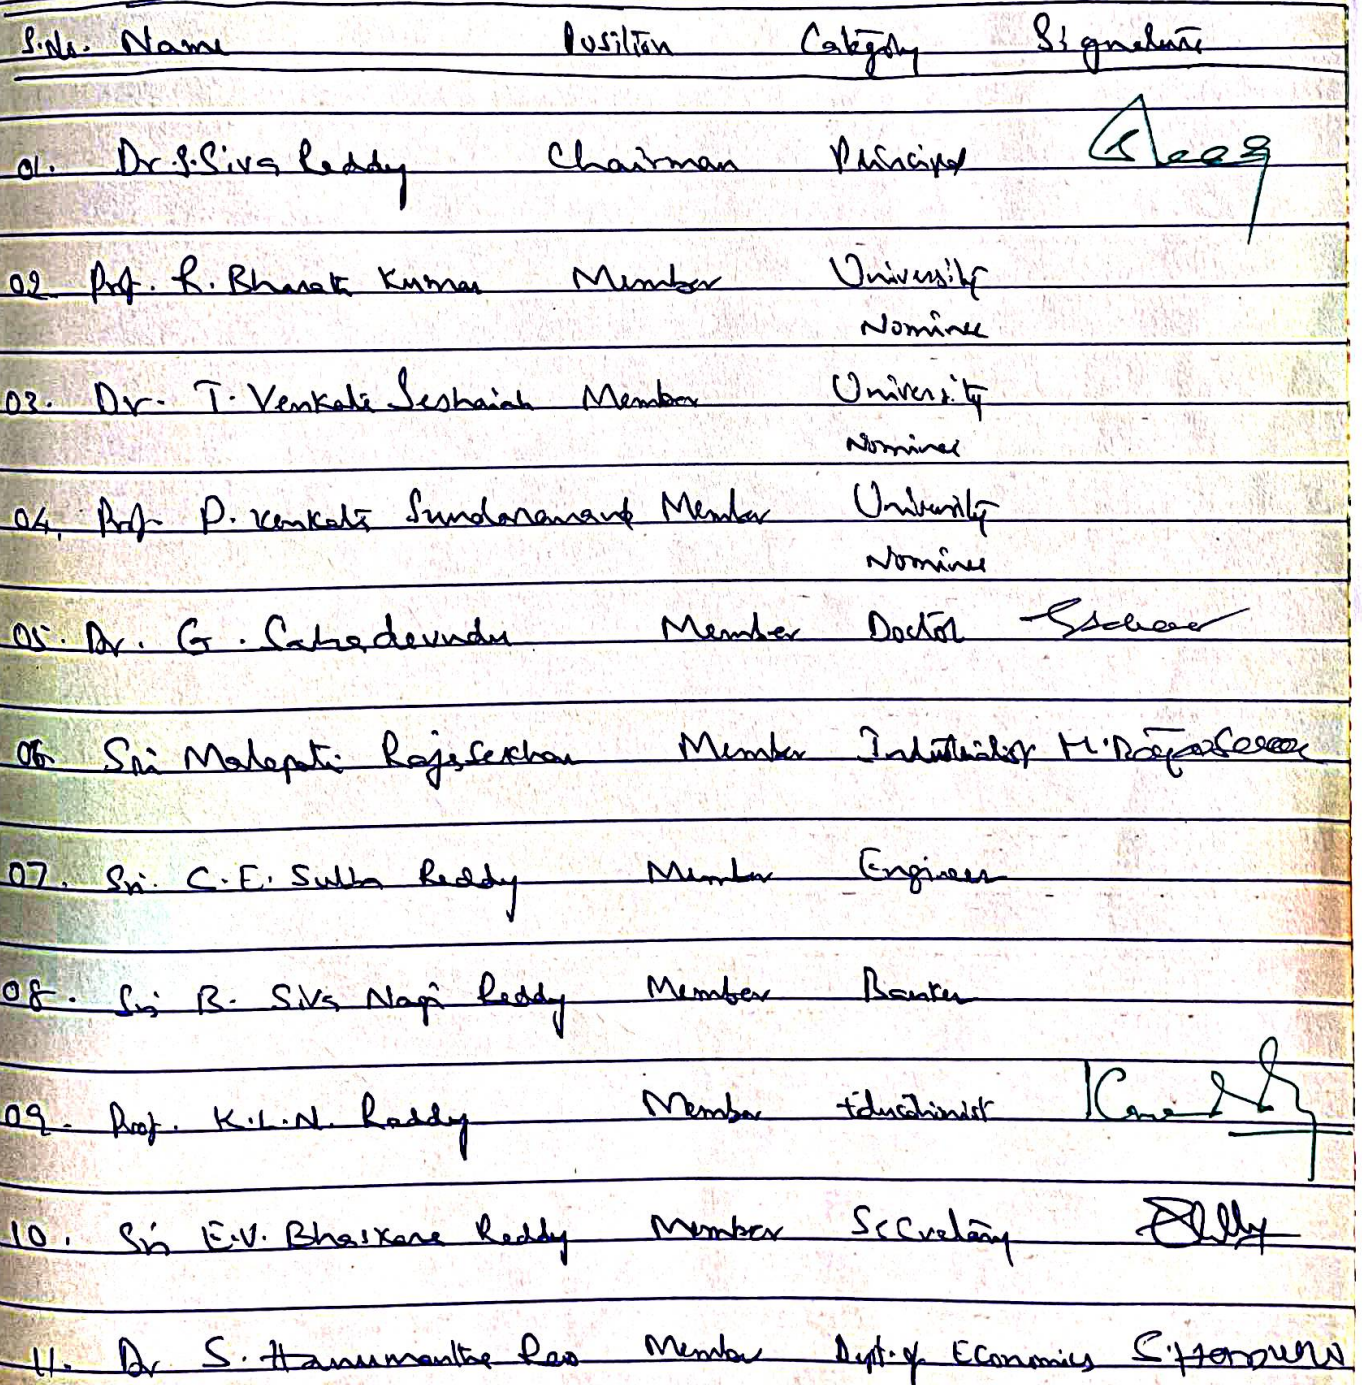 S.No. Name Position Category Signature
01. Dr. S. Siva Reddy Chairman Principal
02. Prof. R. Bharath Kumar Member University
Nominee
03. Dr. T. Venkata Seshaiah Member University
Nominee
04. Prof. P. Venkata Member University
Nominee
05. Dr. G. Sahadevudu Member Doctor
06. Sri Malepati Rajasekhar Member Industrialist M. Rajasekhar
07. Sri. C.E. Subba Reddy Member Engineer
08. Sri B. Siva Nagi Reddy Member Banker
09. Prof. K.L.N. Reddy Member Educationist
10. Sri E.V. Bhaskara Reddy Member Secretary
11. Dr S. Hanumantha Rao Member Dept. of Economics